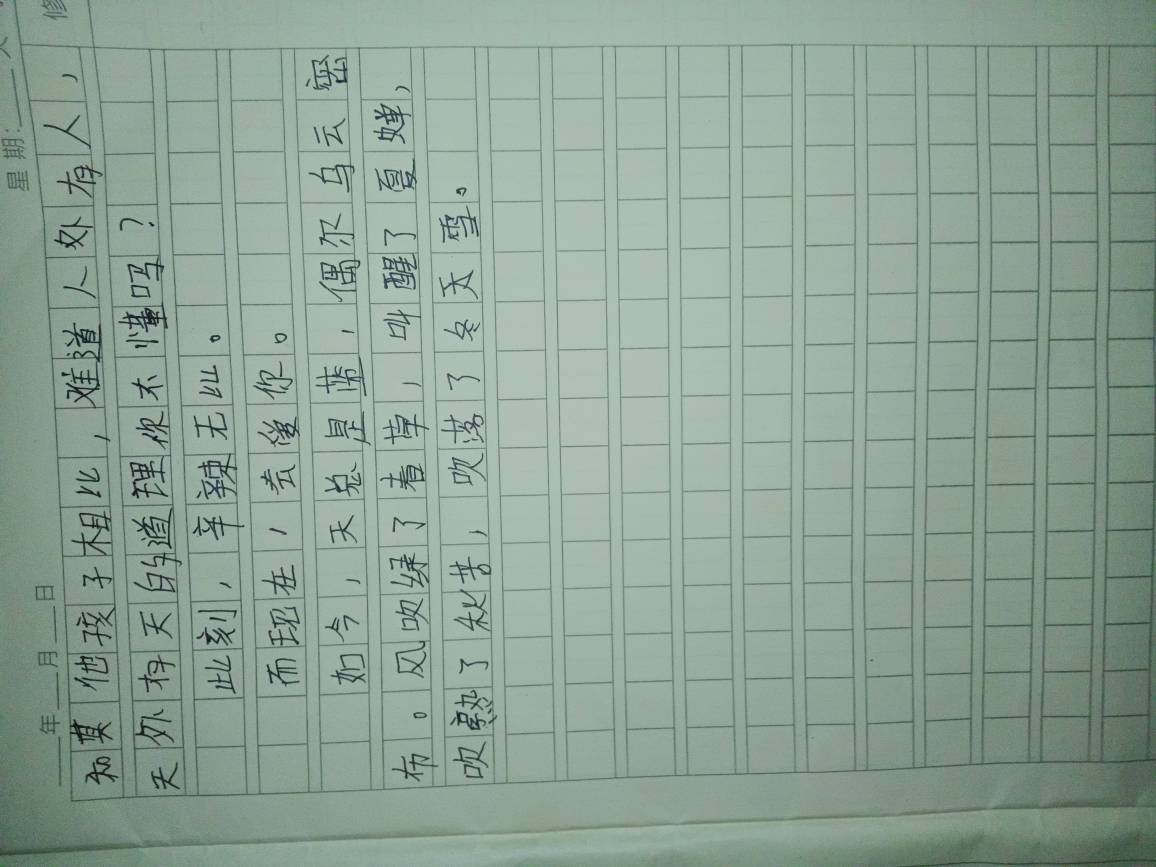 年 月 日 星期:
修
和其他孩子相比，难道人外有人，
天外有天的道理你不懂吗？
此刻，辛辣无比。
而现在，去後你。
如今，天总是蓝，偶尔乌云密
布。风吹绿了春草，叫醒了夏蝉，
吹熟了秋苦，吹落了冬天雪。